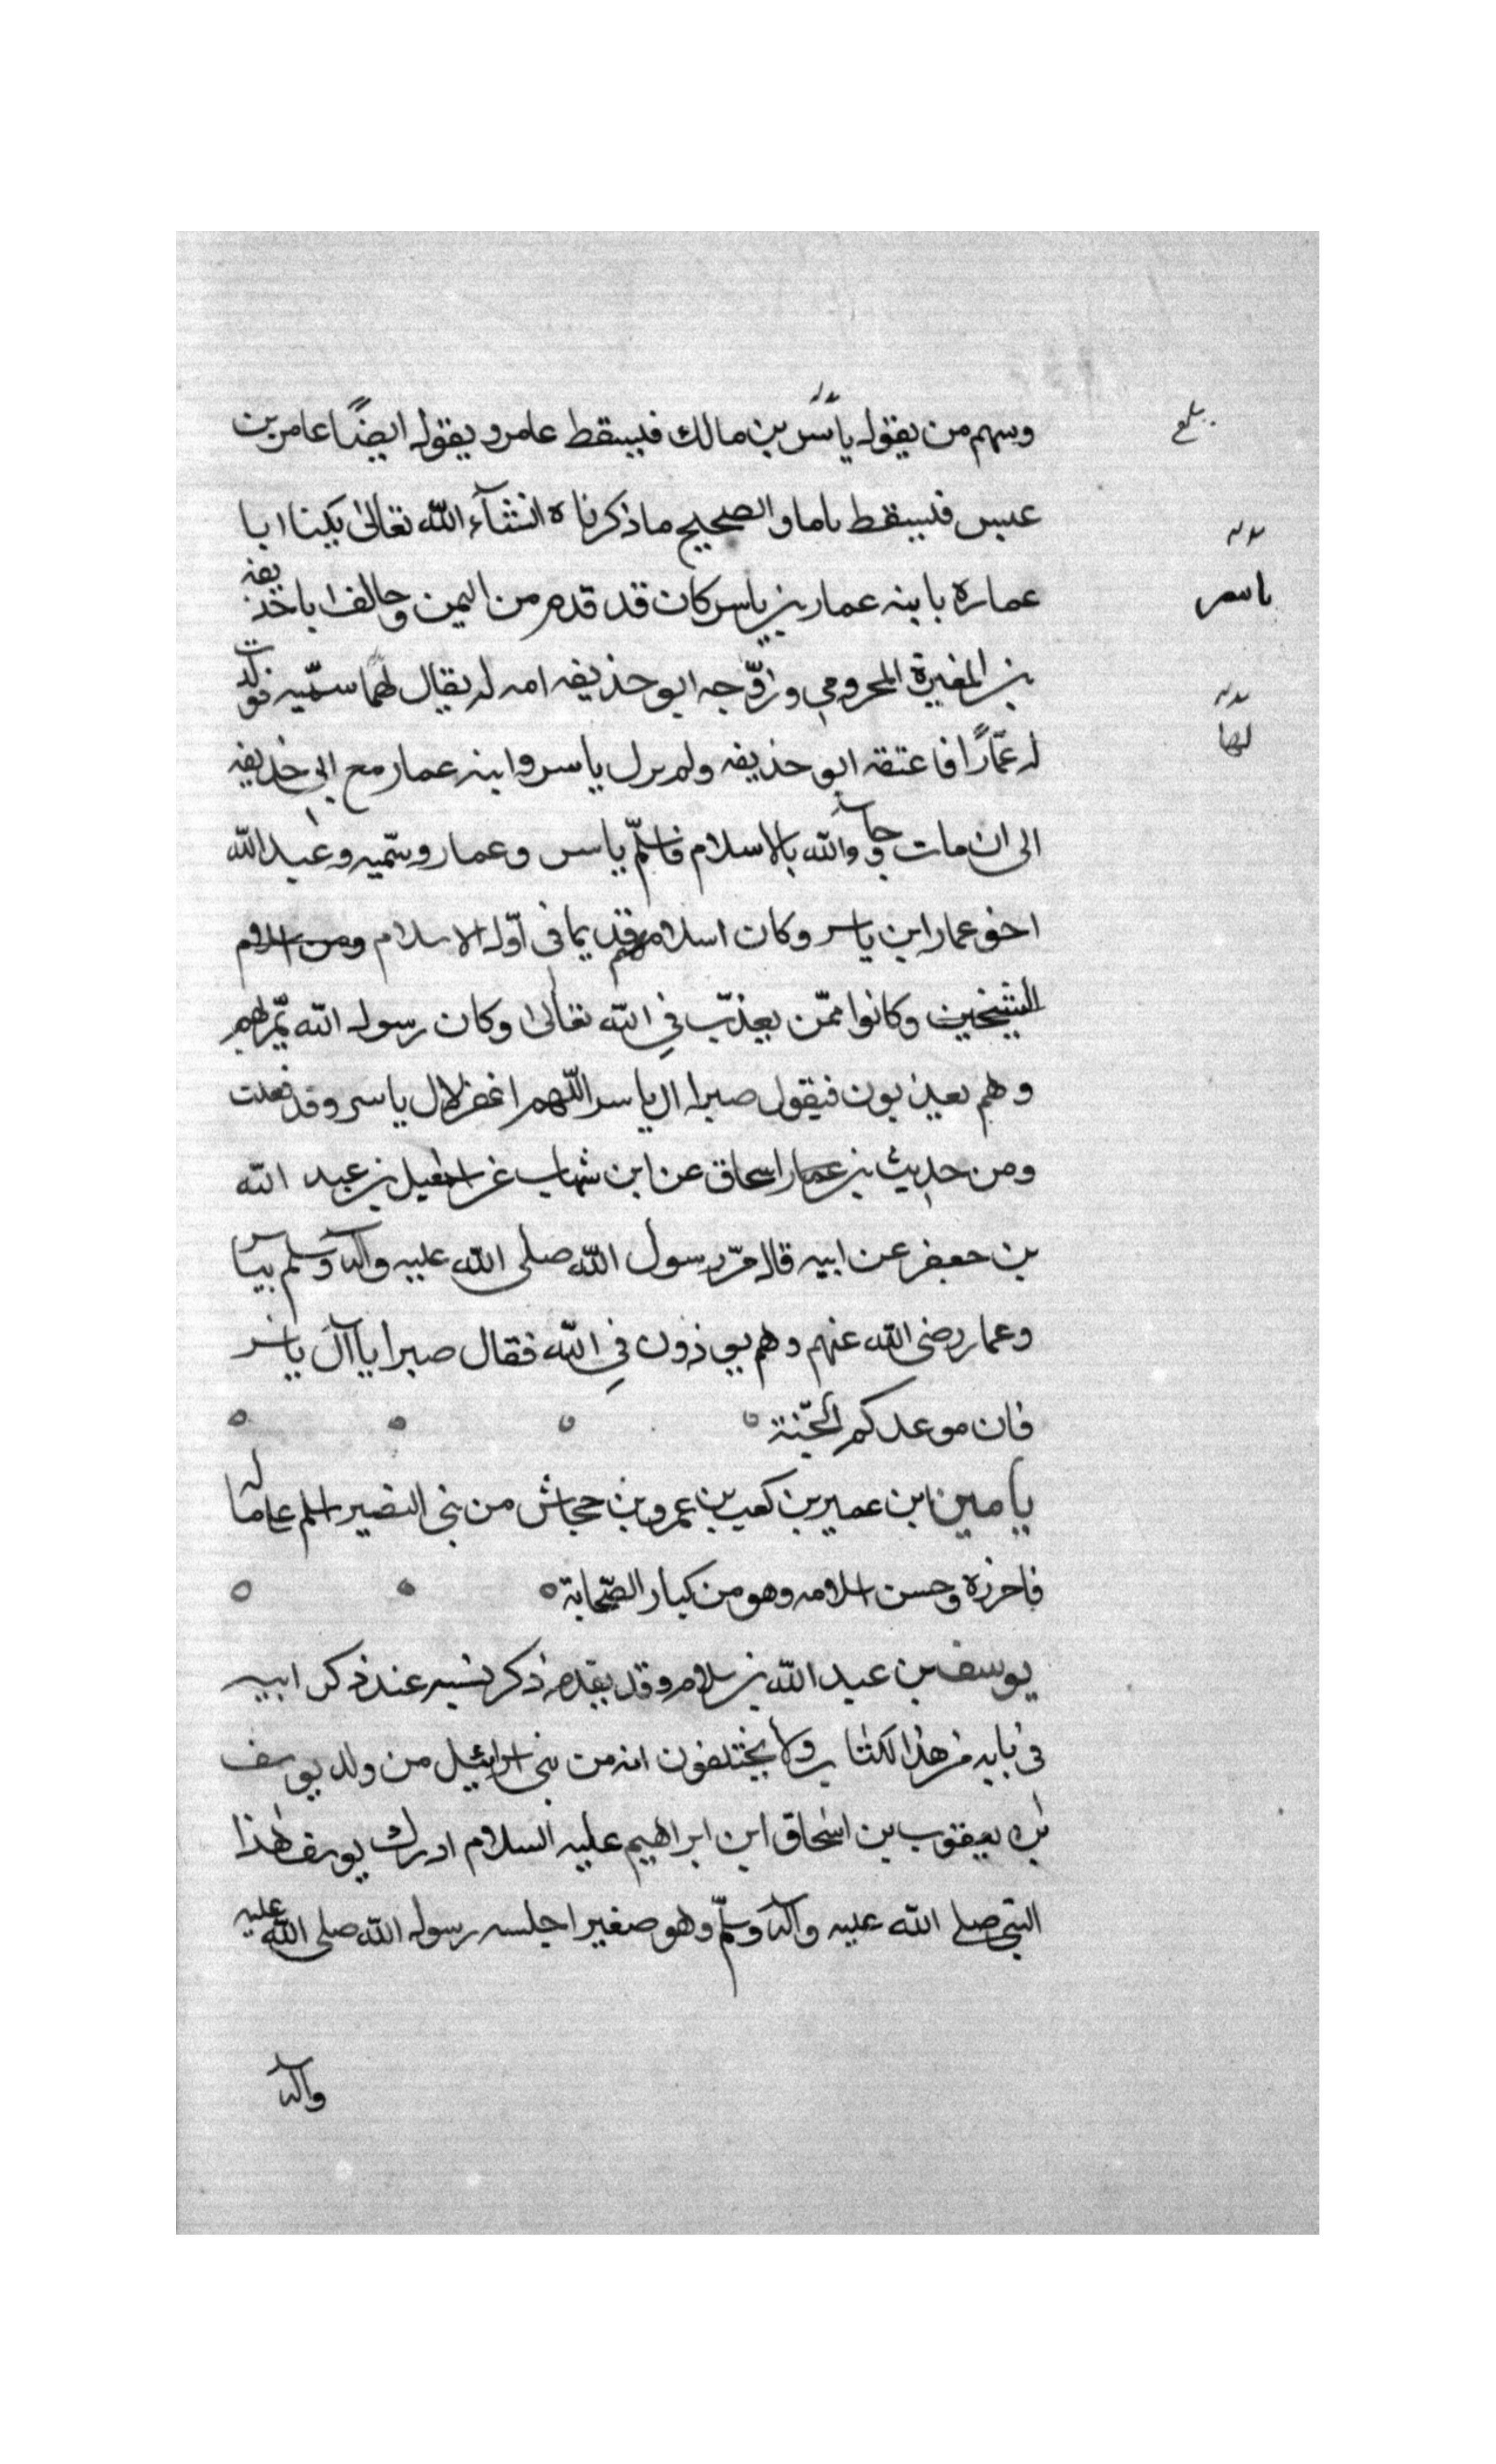 ومنهم من يقول ياسر بن مالك فيسقط عامر ويقول ايضًا عامر بن
عبس فيسقط ياما والصحيح ما ذكرناه انشآء الله تعالى يكنا ابا
عماره بابنه عمار بن ياسر كان قد قدم من اليمن وحالف ابا حذيفه
بن المغيرة المخزومي وزوّجه ابو حذيفه امه له يقال لهما سميّه فولدت
له عمّارًا فاعتقه ابو حذيفه ولم يزل ياسر وابنه عمار مع ابي حذيفه
الى ان مات وجآء والله بالاسلام فاسلم ياسر وعمار وسميه وعبد الله
اخو عمار ابن ياسر وكان اسلامهم قديما في اوّل الاسلام
وكانوا ممّن يعذّب في الله تعالى وكان رسول الله يمّر بهم
وهم يعذبون فيقول صبرا ال ياسر اللّهم اغفر لال ياسر وقد فعلت
ومن حديث بن اسحاق عن ابن شهاب عن اسمعيل بن عبد الله
بن جعفر عن ابيه قال مرّ رسول الله صلى الله عليه وآله وسلم بياسر
وعمار رضى الله عنهم وهم يوذون في الله فقال صبرا يا آل ياسر
فان موعدكم الجّنة
يامين ابن عمير بن كعب بن عمرو بن حجاش من بني النضير اسلم على ماله
فاحرزه وحسن اسلامه وهو من كبار الصّحابة
يوسف بن عبد الله بن سلام وقد تقدم ذكر نسبه عند ذكر ابيه
في بابه من هذا الكتاب ولا يختلفون انه من بني اسرائيل من ولد يوسف
بن يعقوب بن اسحاق ابن ابراهيم عليه السلام ادرك يوسف هذا
النبي صلى الله عليه وآله وسلّم وهو صغير اجلسه رسول الله صلى الله عليه
وآله
بلغ
ياسر
لها